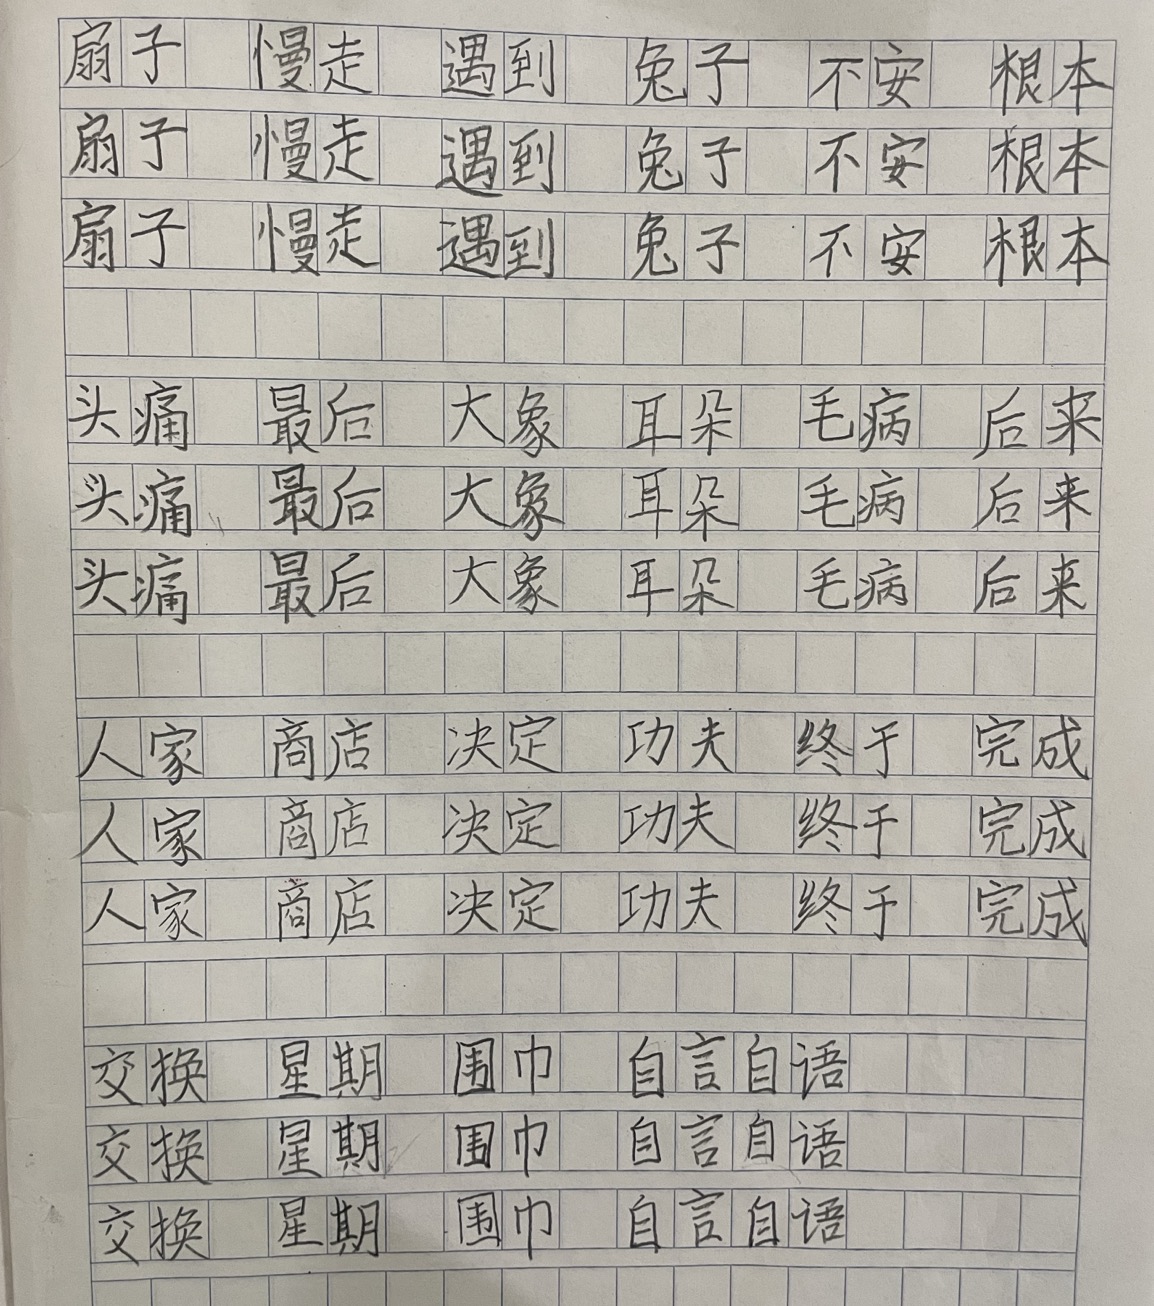 扇子 慢走 遇到 兔子 不安 根本
扇子 慢走 遇到 兔子 不安 根本
扇子 慢走 遇到 兔子 不安 根本
头痛 最后 大象 耳朵 毛病 后来
头痛 最后 大象 耳朵 毛病 后来
头痛 最后 大象 耳朵 毛病 后来
人家 商店 决定 功夫 终于 完成
人家 商店 决定 功夫 终于 完成
人家 商店 决定 功夫 终于 完成
交换 星期 围巾 自言自语
交换 星期 围巾 自言自语
交换 星期 围巾 自言自语